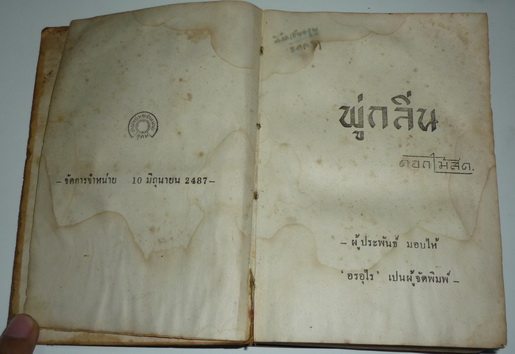 – จัดการจำหน่าย 10 มิถุนายน 2487–
พู่กลิ่น
ดอกไม้สด.
– ผู้ประพันธ์ มอบไห้
'อรอุไร' เปนผู้จัดพิมพ์ –